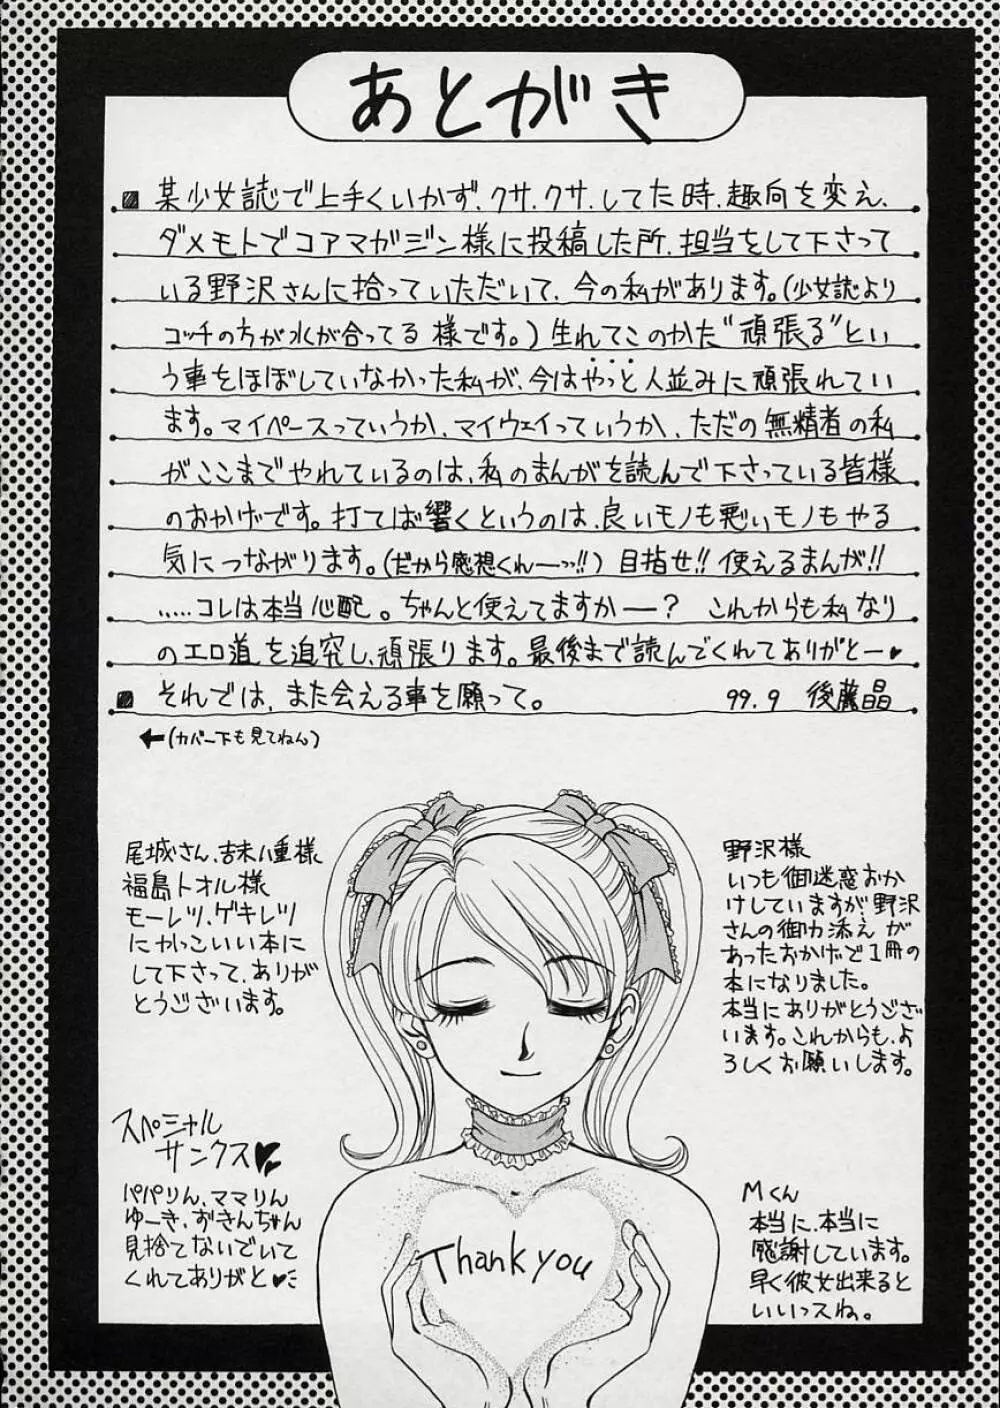 あとがき
某少女誌で上手くいかず、クサ、クサ、してた時、趣向を変え、
ダメモトでコアマガジン様に投稿した所、担当をして下さって
いる野沢さんに拾っていただいて、今の私があります。(少女誌より
コッチの方が水が合ってる様です。)生れてこのかた“頑張る”とい
う事をほぼしていなかった私が、今はやっと人並みに頑張れてい
ます。マイペースっていうか、マイウェイっていうか、ただの無精者の私
がここまでやれているのは、私のまんがを読んで下さっている皆様
のおかげです。打てば響くというのは、良いモノも悪いモノもやる
気につながります。(だから感想くれーっ!!)目指せ!!使えるまんが!!
.....コレは本当心配。ちゃんと使えてますかー?これからも私なり
のエロ道を追究し、頑張ります。最後まで読んでくれてありがとー♥
それでは、また会える事を願って。 99.9 後藤晶
←(カバー下も見てねん)
尾城さん、吉末八重様
福島トオル様
モーレツ、ゲキレツ
にかっこいい本に
して下さって、ありが
とうございます。
野沢様
いつも御迷惑おか
けしていますが、野沢
さんの御力添えが
あったおかげで1冊の
本になりました。
本当にありがとうござい
います。これからも、よ
ろしくお願いします。
スペシャル
サンクス♥
パパりん、ママりん
ゆーき、おきんちゃん
見捨てないでいて
くれてありがと♥
Mくん
本当に、本当に
感謝しています。
早く彼女出来ると
いいっスね。
Thank you